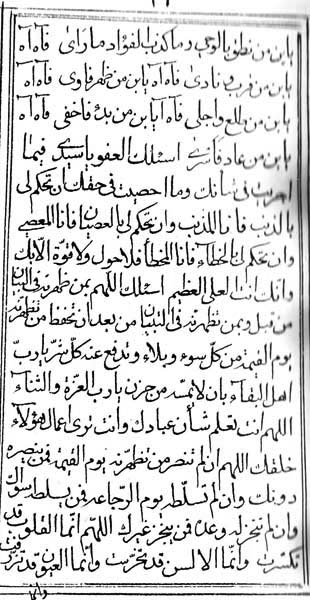 يا بن من نطق بالوحى وما كذب الفؤاد ما راى فآه آه
يا بن من قرب و نادى فآه آه يا بن من ظهر فاوى فآه آه
يا بن من طلع واجلى فآه آه يا بن من بدء فاخفى فآه آه
يا بن من عاد فاسرى اسئلك العفو يا سيدى فيما
اجريت فى شانك وما احصيت فى حقك ان تحكم لى
بالذنب فانا المذنب وان تحكم لى بالعصيان فانا المعصى
وان تحكم لى بالخطاء فانا المخطأ فلا حول ولا قوة الا بك
وانك انت العلى العظيم اسئلك اللهم بمن ظهرته فى البيان
من قبل وبمن تظهرنه فى التبيان من بعد ان تحفظ من تظهرنه
يوم القيمة من كل سوء وبلاء وتدفع عنه كل شر يا رب
اهل البقاء بان لا يمسه من حزن يا رب العزة والثناء
اللهم انت تعلم شأن عبادك وانت ترى اعمال هؤلاء
خلقك اللهم ان لم تنصر من تظهرنه يوم القيمة فمن ينصره
دونك وان لم تسلطه يوم الرجاعه فمن يسلطه سواك
وان لم تنجز له وعده فمن ينجز غيرك اللهم انما القلوب قد
تكسرت وانما الالسن قد تحرست وانما العيون قد
وانما